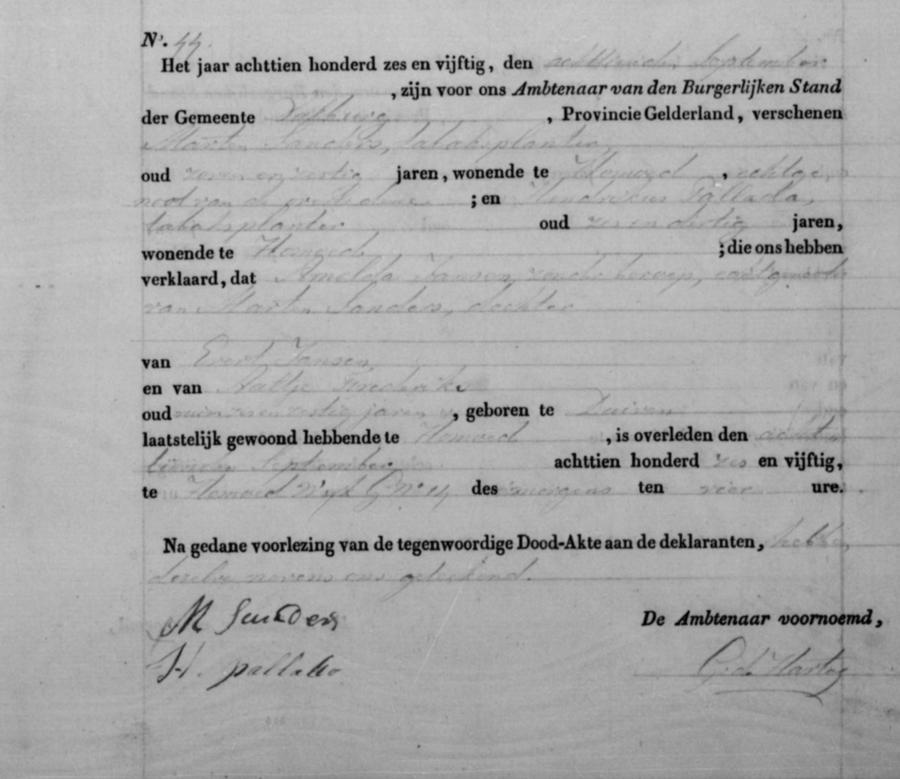 N°. 44.
Het jaar achttien honderd zes en vijftig, den achttienden September
, zijn voor ons Ambtenaar van den Burgerlijken Stand
der Gemeente Valburg , Provincie Gelderland, verschenen
Marten Sanders, tabaksplanter,
oud zeven en zestig jaren, wonende te Homoed , echtge-
noot van de overledene ; en Hendrikus Pallada,
tabaksplanter oud zes en dertig jaren,
wonende te Homoed ; die ons hebben
verklaard, dat Jansen, zonder beroep, echtgenoote
van Marten Sanders, dochter
van Evert Jansen,
en van Aaltje Frederiks
oud en zestig jaren , geboren te Duiven
laatstelijk gewoond hebbende te Homoed , is overleden den achttienden
September achttien honderd zes en vijftig,
te Homoed Wijk G N° 14 des morgens ten vier ure.
Na gedane voorlezing van de tegenwoordige Dood-Akte aan de deklaranten, hebben
dezelve nevens ons geteekend.
M Sanders De Ambtenaar voornoemd,
H. pallada G. d. Hartog